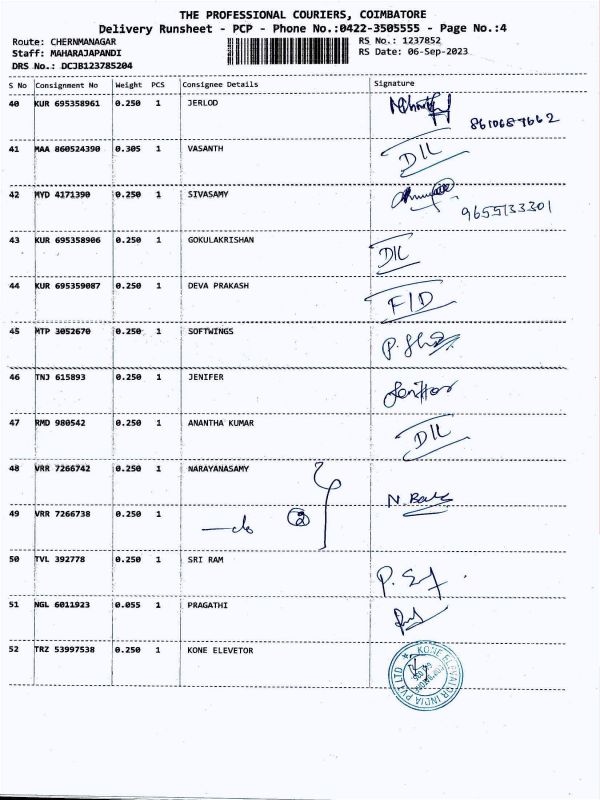 THE PROFESSIONAL COURIERS, COIMBATORE
Delivery Runsheet - PCP - Phone No.:0422-3505555 - Page No.:4
Route: CHERNMANAGAR RS No.: 1237852
Staff: MAHARAJAPANDI RS Date: 06-Sep-2023
DRS No.: DCJB123785204
S No Consignment No Weight PCS Consignee Details Signature
40 KUR 695358961 0.250 1 JERLOD
8610687662
41 MAA 860524390 0.305 1 VASANTH DIL
42 MYD 4171390 0.250 1 SIVASAMY
9655133301
43 KUR 695358906 0.250 1 GOKULAKRISHAN DIL
44 KUR 695359087 0.250 1 DEVA PRAKASH F/D
45 MTP 3052670 0.250 1 SOFTWINGS
46 TNJ 615893 0.250 1 JENIFER
47 RMD 980542 0.250 1 ANANTHA KUMAR DIL
48 VRR 7266742 0.250 1 NARAYANASAMY
49 VRR 7266738 0.250 1 —do 2
50 TVL 392778 0.250 1 SRI RAM
51 NGL 6011923 0.055 1 PRAGATHI
52 TRZ 53997538 0.250 1 KONE ELEVETOR
KONE ELEVATOR INDIA PVT LTD